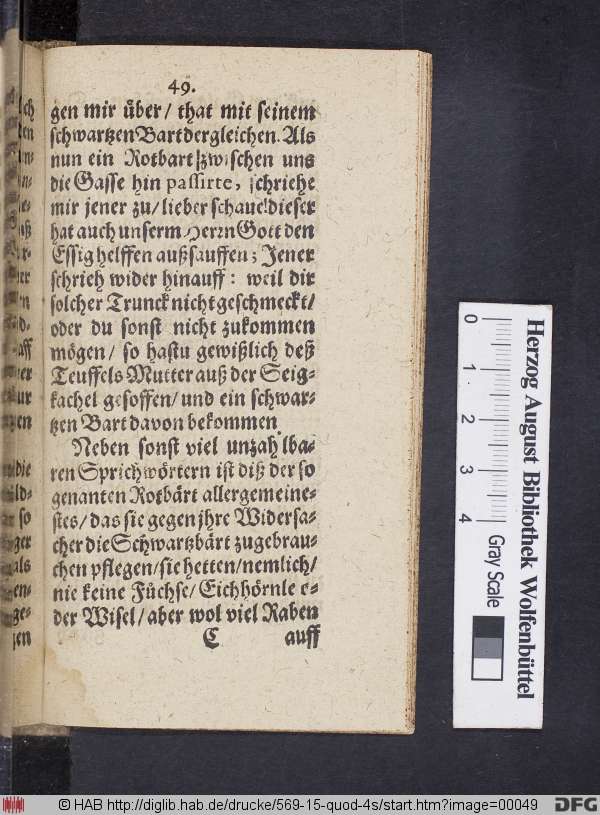 49.
gen mir über/ that mit seinem
schwartzen Bart dergleichen. Als
nun ein Rotbart zwischen uns
die Gasse hin passirte, schriehe
mir jener zu/ lieber schaue! dieser
hat auch unserm Herrn Gott den
Essig helffen außsauffen; Jener
schrieh wider hinauff: weil dir
solcher Trunck nicht geschmeckt/
oder du sonst nicht zukommen
mögen/ so hastu gewißlich deß
Teuffels Mutter auß der Seig-
kachel gesoffen/ und ein schwar-
tzen Bart davon bekommen
Neben sonst viel unzahlba-
ren Sprichwörtern ist diß der so
genanten Rotbärt allergemeine-
stes/ das sie gegen jhre Widersa-
cher die Schwartzbärt zugebrau-
chen pflegen/ sie hetten/ nemlich/
nie keine Füchse/ Eichhörnle o-
der Wisel/ aber wol viel Raben
C auff
0 1 2 3 4
Herzog August Bibliothek Wolfenbüttel
Gray Scale
© HAB http://diglib.hab.de/drucke/569-15-quod-4s/start.htm?image=00049
DFG